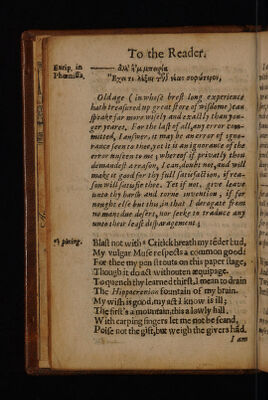 To the Reader.
Eurip. in
Phœnissa.
Ἔχει τι λέξαι τῶν νέων σοφώτερον,
Old age (in whose brest long experience
hath treasured up great store of wisdome) can
speake far more wisely and exactly than youn-
ger yeares. For the last of all, any error com-
mitted, I answer, it may be an error of igno-
rance seen to thee, yet it is an ignorance of the
error unseen to me; whereof if privatly thou
demandest a reason, I can, doubt not, and will
make it good for thy full satisfaction, if rea-
son will satisfie thee. Yet if not, give leave
unto thy harsh and torne invention, if for
nought else but this, in that I derogate from
no man due desert, nor seeke to traduce any
unto their least disparagement;
Blast not with a Critick breath my teder bud,
My vulgar Muse respects a common good:
For thee my pen strouts on this paper stage,
Though it do act withouten æquipage.
To quench thy learned thirst, I mean to drain
The Hippocrenian fountain of my brain.
My wish is good, my act I know is ill;
The first's a mountain, this a lowly hill,
With carping fingers let me not be scand,
Poise not the gift, but weigh the givers hãd.
I am